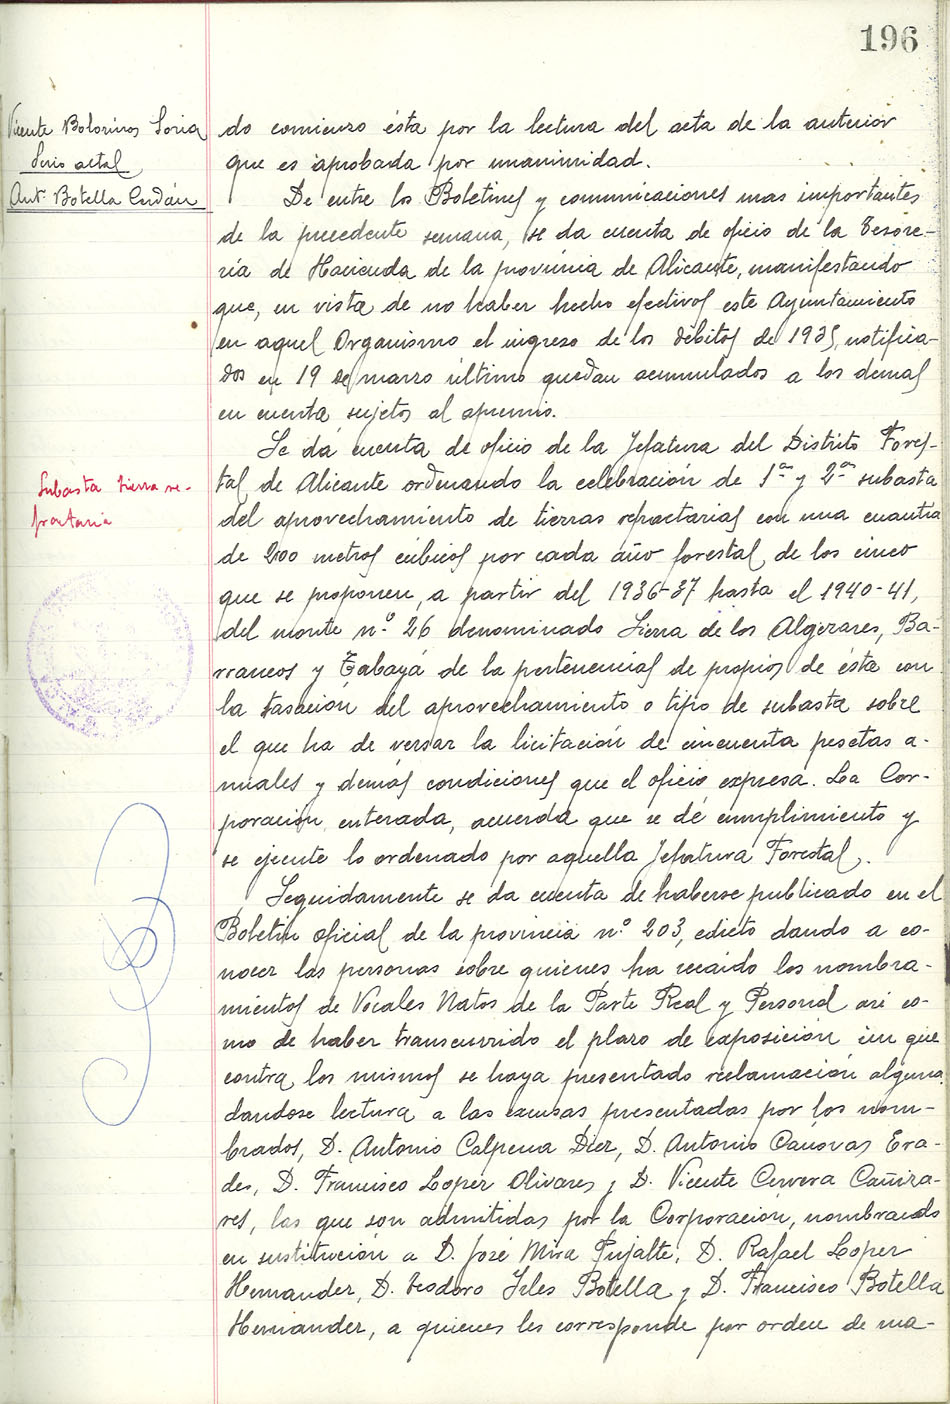 196
Vicente Bolorinos Soria
Srio actal
Ant. Botella Cerdán
do comienzo ésta por la lectura del acta de la anterior
que es aprobada por unanimidad.
De entre los Boletines y comunicaciones mas importantes
de la precedente semana, se da cuenta de oficio de la Tesore-
ría de Hacienda de la provincia de Alicante, manifestando
que, en vista de no haber hecho efectivos este Ayuntamiento
en aquel Organismo el ingreso de los débitos de 1935, notifica-
dos en 19 de marzo último quedan acumulados a los demas
en cuenta sujetos al apremio.
Subasta tierra re-
fractaria
Se dá cuenta de oficio de la Jefatura del Distrito Fores-
tal de Alicante ordenando la celebración de 1ª y 2ª subasta
del aprovechamiento de tierras refractarias con una cuantía
de 200 metros cúbicos por cada año forestal de los cinco
que se proponen, a partir del 1936-37 hasta el 1940-41,
del monte n.º 26 denominado Sierra de los Algezares, Ba-
rrancos y Tabayá de la pertenencias de propios de ésta con
la tasación del aprovechamiento o tipo de subasta sobre
el que ha de versar la licitación de cincuenta pesetas a-
nuales y demás condiciones que el oficio expresa. La Cor-
poración, enterada, acuerda que se dé cumplimiento y
se ejecute lo ordenado por aquella Jefatura Forestal.
Seguidamente se da cuenta de haberse publicado en el
Boletin oficial de la provincia n.º 203, edicto dando a co-
nocer las personas sobre quienes ha recaido los nombra-
mientos de Vocales Natos de la Parte Real y Personal asi co-
mo de haber transcurrido el plazo de exposición sin que
contra los mismos se haya presentado reclamación alguna
dandose lectura a las excusas presentadas por los nom-
brados, D. Antonio Calpena Diez, D. Antonio Canovas Era-
des, D. Francisco Lopez Olivares y D. Vicente Cervera Cañiza-
res, las que son admitidas por la Corporación, nombrando
en sustitución a D. José Mira Pujalte, D. Rafael Lopez
Hernandez, D. Teodoro Botella y D. Francisco Botella
Hernandez, a quienes les corresponde por orden de ma-